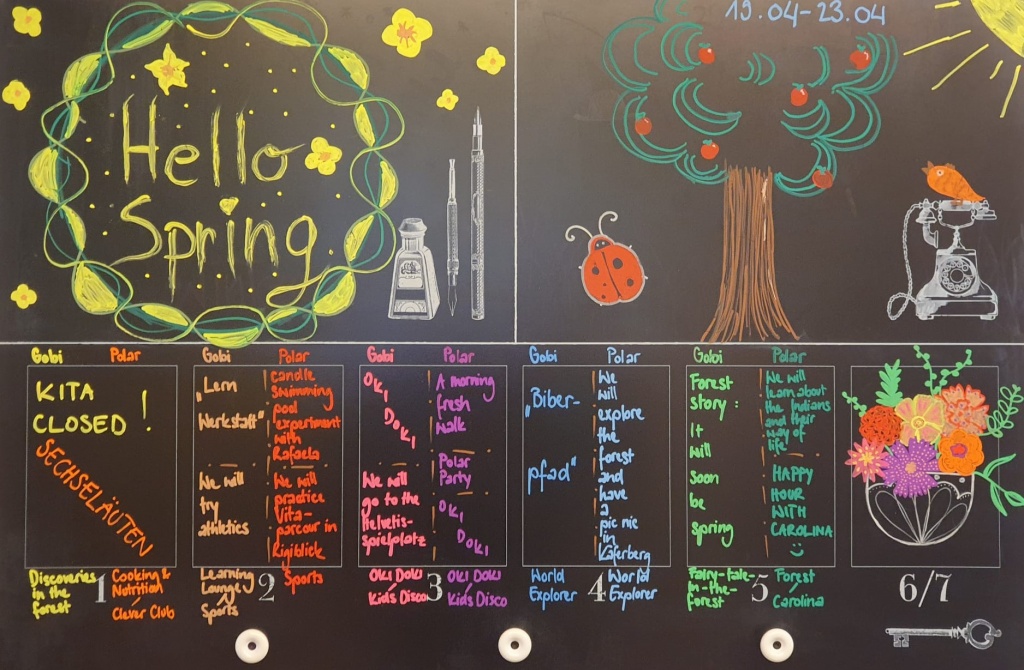 Hello
Spring
19.04-23.04
Gobi Polar
KITA
CLOSED!
SECHSELÄUTEN
Discoveries
in the
forest
1
Cooking &
Nutrition
Clever Club
Gobi
„Lern
Werkstatt"
We will
try
athletics
Polar
candle
swimming
pool
experiment
with
Rafaela
We will
practice
Vita-
parcour in
Rigiblick
Learning
Lounge
Sports
2
Sports
Gobi
OKI
DOKI
We will
go to the
Helvetis-
spielplatz
Polar
A morning
fresh
walk
Polar
Party
OKI
DOKI
OKI DOKI
Kids Disco
3
OKI DOKI
Kids Disco
Gobi
„Biber-
pfad"
Polar
We
will
explore
the
forest
and
have
a
pic nic
in
Käferberg
World
Explorer
4
World
Explorer
Gobi
Forest
story :
It
will
soon
be
spring
Polar
We will
learn about
the Indians
and their
way of
life
HAPPY
HOUR
WITH
CAROLINA
Fairy-tale-
in-the-
Forest
5
Forest
Carolina
6/7